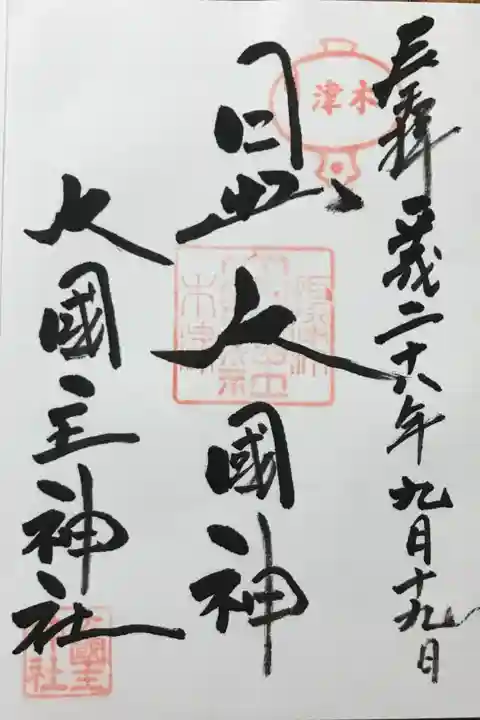 奉拝 平成二十八年九月十九日
木津
日出大國神
大國主神社